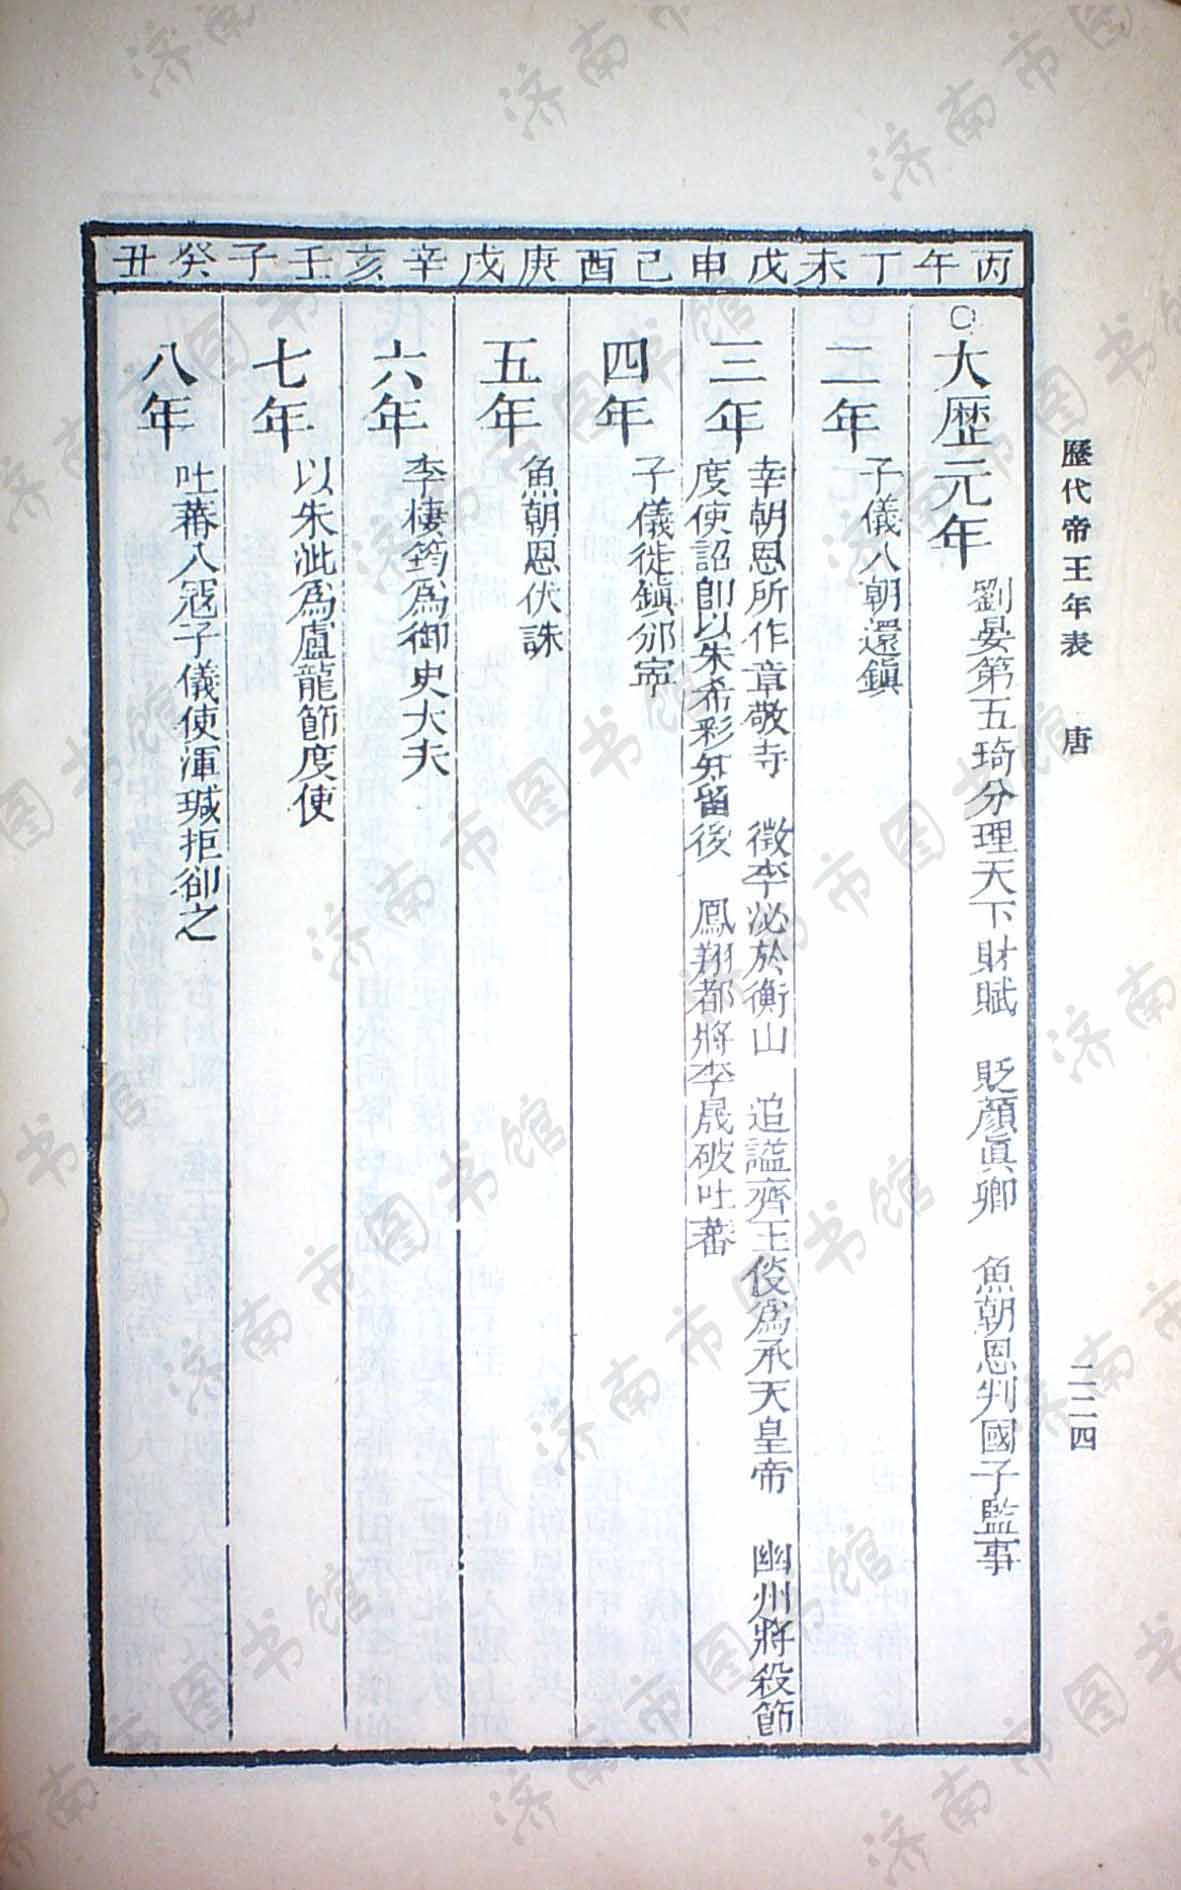 歷代帝王年表　唐　二二四
丙午丁未戊申己酉庚戊辛亥壬子癸丑
○大歷元年
劉晏第五琦分理天下財賦　貶顏眞卿　魚朝恩判國子監事
二年
子儀入朝還鎭
三年
幸朝恩所作章敬寺　徵李泌於衡山　追謚齊王倓爲承天皇帝　幽州將殺節
度使詔卽以朱希彩知留後　鳳翔都將李晟破吐蕃
四年
子儀徙鎭邠寧
五年
魚朝恩伏誅
六年
李棲筠爲御史大夫
七年
以朱泚爲盧龍節度使
八年
吐蕃入寇子儀使渾瑊拒卻之
济南市图书馆